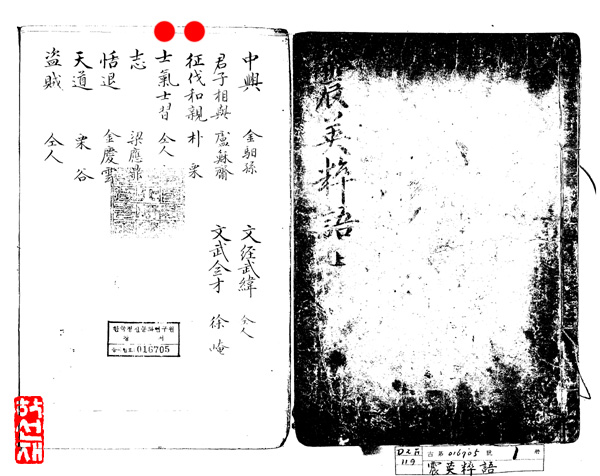 震英粹語 上
中興 金馹孫 文經武緯 仝人
君子相與 盧蘇齋 文武全才 徐崦
征伐和親 朴 栗
士氣士習 仝人
志 梁應鼎
恬退 金慶雲
天道 栗谷
盗賊 仝人
한국정신문화연구원
장서
등록번호 016705
古書 016705 號 1 冊
震英粹語
119